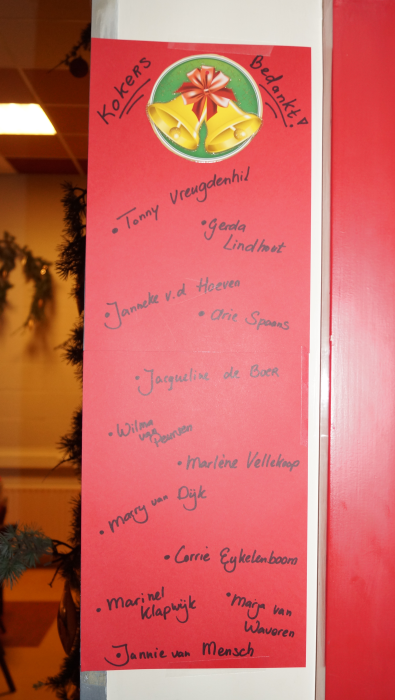 Kokers Bedankt!
• Tonny Vreugdenhil
• Gerda
Lindhout
• Janneke v.d Hoeven
• Arie Spaans
• Jacqueline de Boer
• Wilma
van
• Marlène Vellekoop
• Marry van Dijk
• Corrie Eykelenboom
• Marinel
Klapwijk
• Marja van
Waveren
• Jannie van Mensch